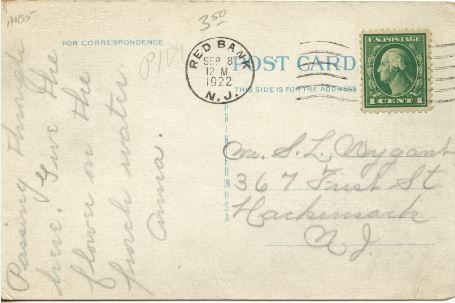 A165
3.50
FOR CORRESPONDENCE
POST CARD
THIS SIDE IS FOR THE ADDRESS
RED BANK
SEP 8
12 M
1922
N.J.
U.S. POSTAGE
1 CENT 1
Passing through
here. Give the
flower on the
porch water
Anna.
S. L. Wygant
367 St
Hackensack
N J